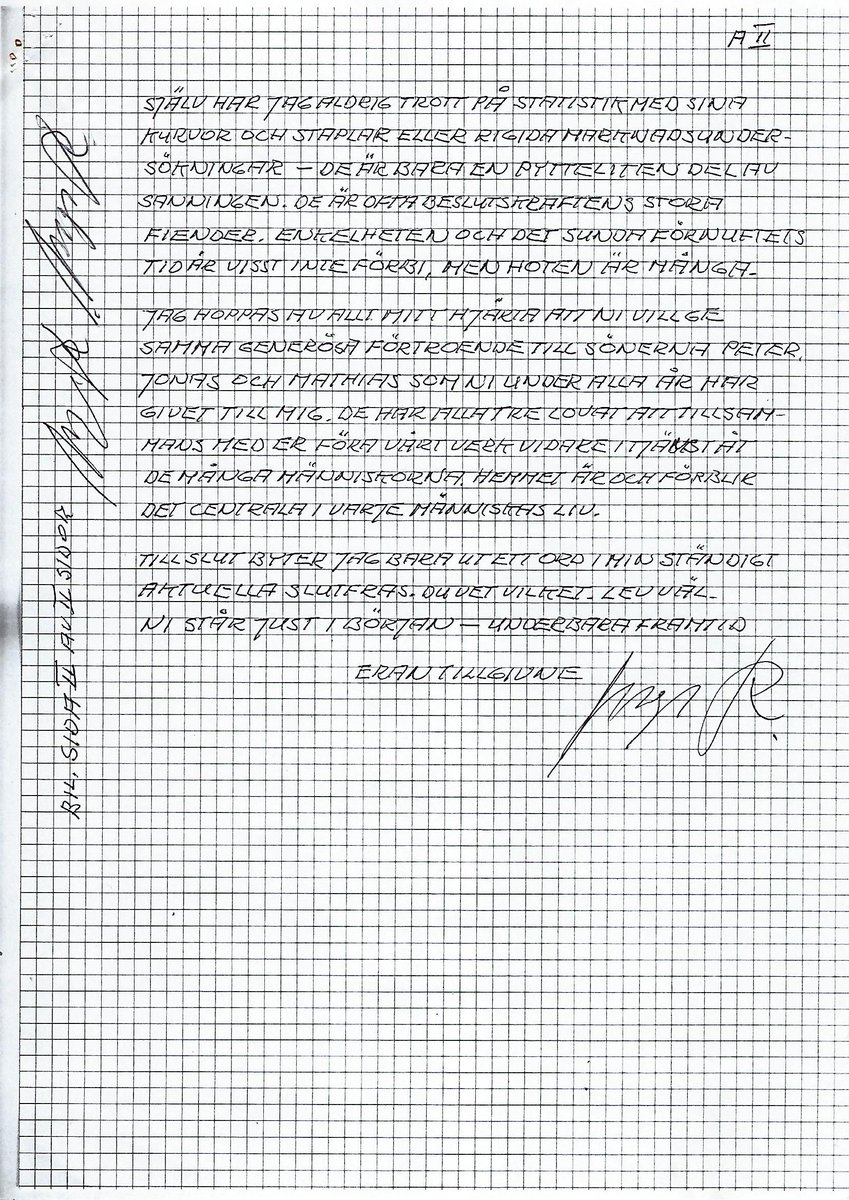 A II
SJÄLV HAR JAG ALDRIG TROTT PÅ STATISTIK MED SINA
KURVOR OCH STAPLAR ELLER RIGIDA MARKNADSUNDER-
SÖKNINGAR – DE ÄR BARA EN PYTTELITEN DEL AV
SANNINGEN. DE ÄR OFTA BESLUTSKRAFTENS STORA
FIENDER. ENKELHETEN OCH DET SUNDA FÖRNUFTETS
TID ÄR VISST INTE FÖRBI, MEN HOTEN ÄR MÅNGA.
JAG HOPPAS AV ALLT MITT HJÄRTA ATT NI VILL GE
SAMMA GENERÖSA FÖRTROENDE TILL SÖNERNA PETER,
JONAS OCH MATHIAS SOM NI UNDER ALLA ÅR HAR
GIVET TILL MIG. DE HAR ALLA TRE LOVAT ATT TILLSAM-
MANS MED ER FÖRA VÅRT VERK VIDARE I TJÄNST ÅT
DE MÅNGA MÄNNISKORNA. HEMMET ÄR OCH FÖRBLIR
DET CENTRALA I VARJE MÄNNISKAS LIV.
TILL SLUT BYTER JAG BARA UT ETT ORD I MIN STÄNDIGT
AKTUELLA SLUTFRAS. DU VET VILKET. LEV VÄL.
NI STÅR JUST I BÖRJAN – UNDERBARA FRAMTID
ERAN TILLGIVNE
BIL, SIDA II AV II SIDOR